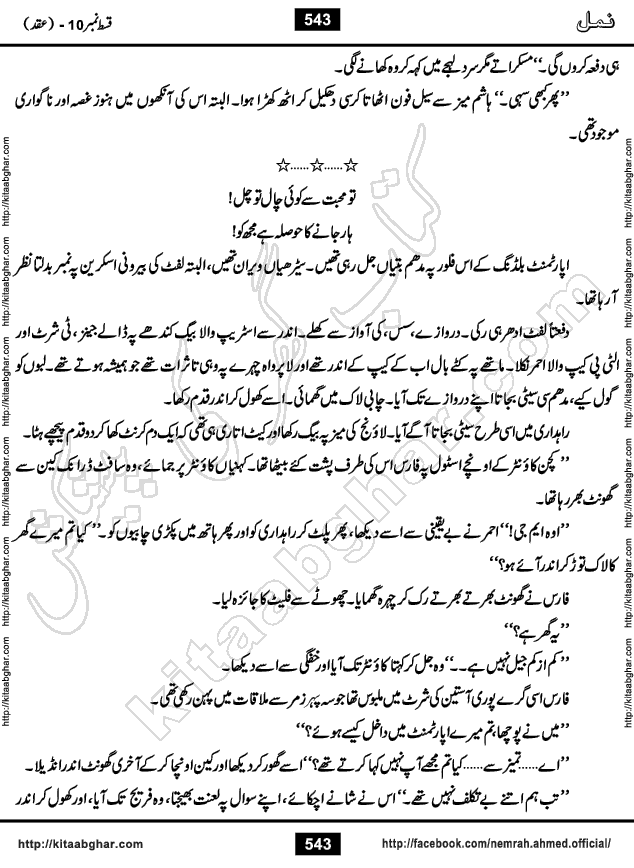 نمل
543
قسط نمبر 10 - (عقد)
ہی دفعہ کروں گی۔‘‘ مسکراتے مگر سرد لہجے میں کہہ کر وہ کھانے لگی۔
’’پھر کبھی سہی۔‘‘ ہاشم میز سے سیل فون اٹھاتا کرسی دھکیل کر اٹھ کھڑا ہوا۔ البتہ اس کی آنکھوں میں ہنوز غصہ اور ناگواری
موجود تھی۔
☆......☆......☆
تو محبت سے کوئی چال تو چل!
ہار جانے کا حوصلہ ہے مجھ کو!
اپارٹمنٹ بلڈنگ کے اس فلور پہ مدھم بتیاں جل رہی تھیں۔ سیڑھیاں ویران تھیں، البتہ لفٹ کی بیرونی اسکرین پہ نمبر بدلتا نظر
آ رہا تھا۔
دفعتاً لفٹ ادھر ہی رکی۔ دروازے، سس، کی آواز سے کھلے۔ اندر سے اسٹریپ والا بیگ کندھے پہ ڈالے جینز، ٹی شرٹ اور
الٹی پی کیپ والا احمر نکلا۔ ماتھے پہ کٹے بال اب کے کیپ کے اندر تھے اور لا پرواہ چہرے پہ وہی تاثرات تھے جو ہمیشہ ہوتے تھے۔ لبوں کو
گول کیے، مدھم سی سیٹی بجاتا اپنے دروازے تک آیا۔ چابی لاک میں گھمائی۔ اسے کھول کر اندر قدم رکھا۔
راہداری میں اسی طرح سیٹی بجاتا آگے آیا۔ لاؤنج کی میز پہ بیگ رکھا اور کیٹ اتاری ہی تھی کہ ایک دم کرنٹ کھا کر دو قدم پیچھے ہٹا۔
’’کچن کاؤنٹر کے اونچے اسٹول پہ فارس اس کی طرف پشت کئے بیٹھا تھا۔ کہنیاں کاؤنٹر پر جمائے، وہ سافٹ ڈرانک کین سے
گھونٹ بھر رہا تھا۔
’’اوہ ایم جی!‘‘ احمر نے بے یقینی سے اسے دیکھا، پھر پلٹ کر راہداری کو اور پھر ہاتھ میں پکڑی چابیوں کو۔ ’’کیا تم میرے گھر
کا لاک توڑ کر اندر آئے ہو؟‘‘
فارس نے گھونٹ بھرتے بھرتے رک کر چہرہ گھمایا۔ چھوٹے سے فلیٹ کا جائزہ لیا۔
’’یہ گھر ہے؟‘‘
’’کم از کم جیل نہیں ہے۔۔‘‘ وہ جل کر کہتا کاؤنٹر تک آیا اور خفگی سے اسے دیکھا۔
فارس اسی گرے پوری آستین کی شرٹ میں ملبوس تھا جو سہ پہر زمر سے ملاقات میں پہن رکھی تھی۔
’’میں نے پوچھا، تم میرے اپارٹمنٹ میں داخل کیسے ہوئے؟‘‘
’’اے......تمیز سے......کیا تم مجھے آپ نہیں کہا کرتے تھے؟‘‘ اسے گھور کر دیکھا اور کین اونچا کر کے آخری گھونٹ اندر انڈیلا۔
’’تب ہم اتنے بے تکلف نہیں تھے۔‘‘ اس نے شانے اچکائے، اپنے سوال پہ لعنت بھیجتا، وہ فریج تک آیا، اور کھول کر اندر
http://kitaabghar.com
543
http://facebook.com/nemrah.ahmed.official/
http://kitaabghar.com http://kitaabghar.com http://kitaabghar.com http://kitaabghar.com http://kitaabghar.com http://kitaabghar.com
http://kitaabghar.com http://kitaabghar.com http://kitaabghar.com http://kitaabghar.com http://kitaabghar.com http://kitaabghar.com
کتاب گھر کی پیشکش
kitaabghar.com